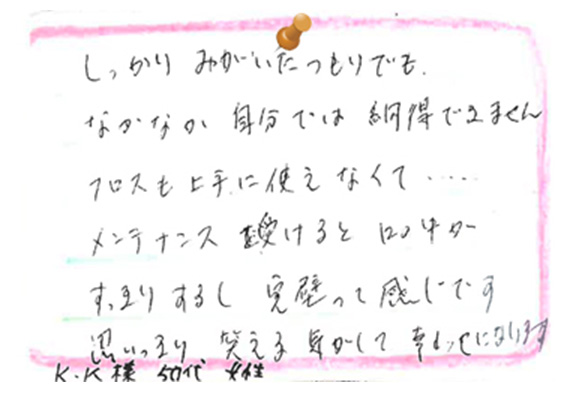 しっかり みがいたつもりでも.
なかなか 自分では 納得できません
フロスも 上手に 使え なくて .....
メンテナンス を受けると ロの中が
すっきりするし 完璧って 感じです
思いっきり 笑える 気がして 幸せになります
K.K様 50代 女性